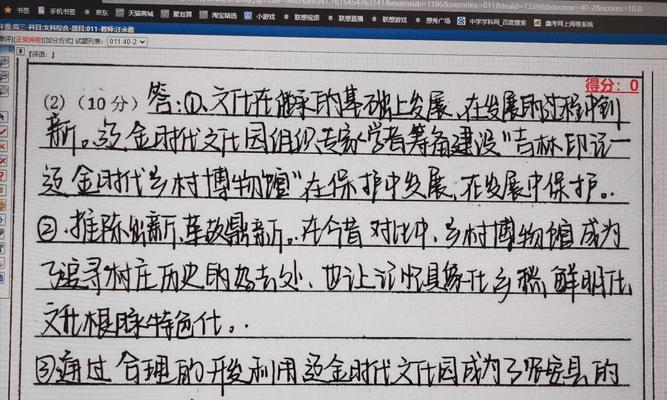 书签 京东 天猫商城 聚划算 淘宝精选 小游戏 视频 联想直播 游戏 联想游戏 想秀广场 中学学科网_百度搜 鑫考网上阅卷系统
科目:文科综合
得分: 0
(2)(10分)答:①、文化在继承的基础上发展、在发展的过程中创
新。辽金时代文化园组织专家学者筹备建设“吉林印记—
辽金时代乡村博物馆”在保护中发展、在发展中保护。
②、推陈出新、革故鼎新。在今昔对比中、乡村博物馆成为
了追寻村庄历史的好去处、也让记忆具象化乡愁、鲜明化
文化根脉特色化。
③通过合理的开发利用辽金时代文化园成为了农安县的